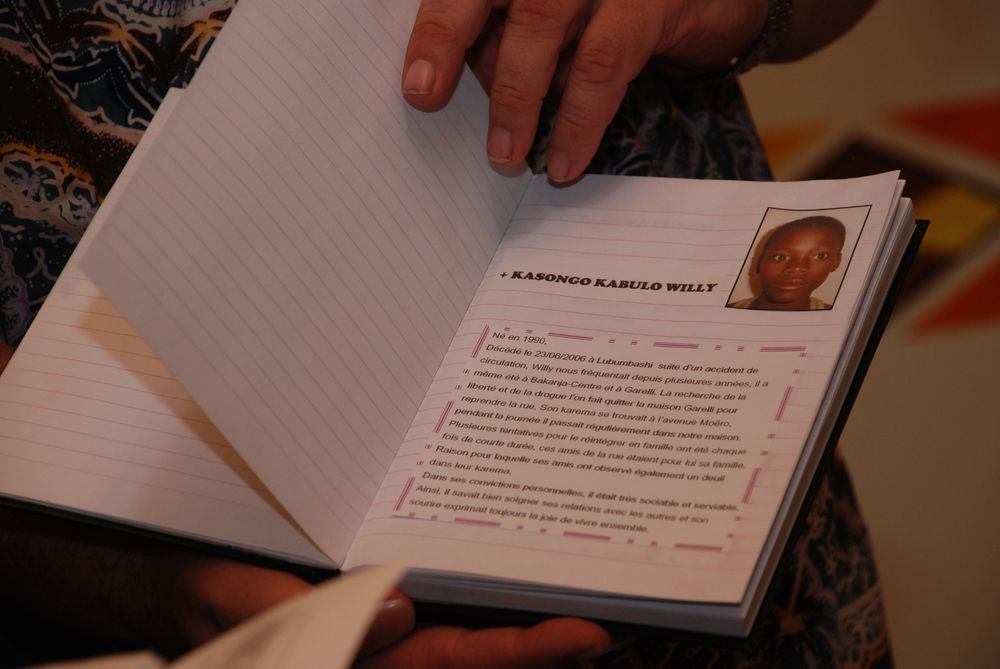 + KASONGO KABULO WILLY
Né en 1990,
Décédé le 23/06/2006 à Lubumbashi suite d'un accident de
circulation, Willy nous fréquentait depuis plusieures années, il a
même été à Bakanja-Centre et à Garelli. La recherche de la
liberté et de la drogue l'on fait quitter la maison Garelli pour
reprendre la rue. Son karema se trouvait à l'avenue Moëro,
pendant la journée il passait régulièrement dans notre maison.
Plusieures tentatives pour le réintégrer en famille ont été chaque
fois de courte durée, ces amis de la rue étaient pour lui sa famille.
Raison pour laquelle ses amis ont observé également un deuil
dans leur karema.
Dans ses convictions personnelles, il était très sociable et serviable.
Ainsi, il savait bien soigner ses relations avec les autres et son
sourire exprimait toujours la joie de vivre ensemble.